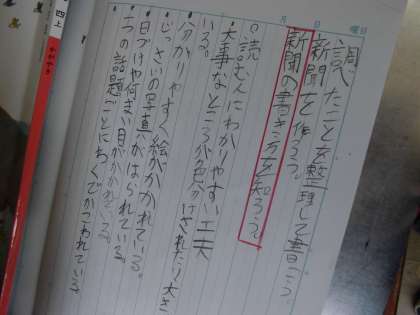 調べたことを整理して書こう
新聞を作ろう。
新聞の書き方を知ろう。
○読む人にわかりやすい工夫
・大事なところが色分けされたり、大き
いる。
・分かりやすく絵がかかれている。
・じっさいの写真がはられている。
・日づけや何まい目かかかれている。
・一つの話題ごとにわくでかこわれている。
四上
かがやき
月
日
曜日